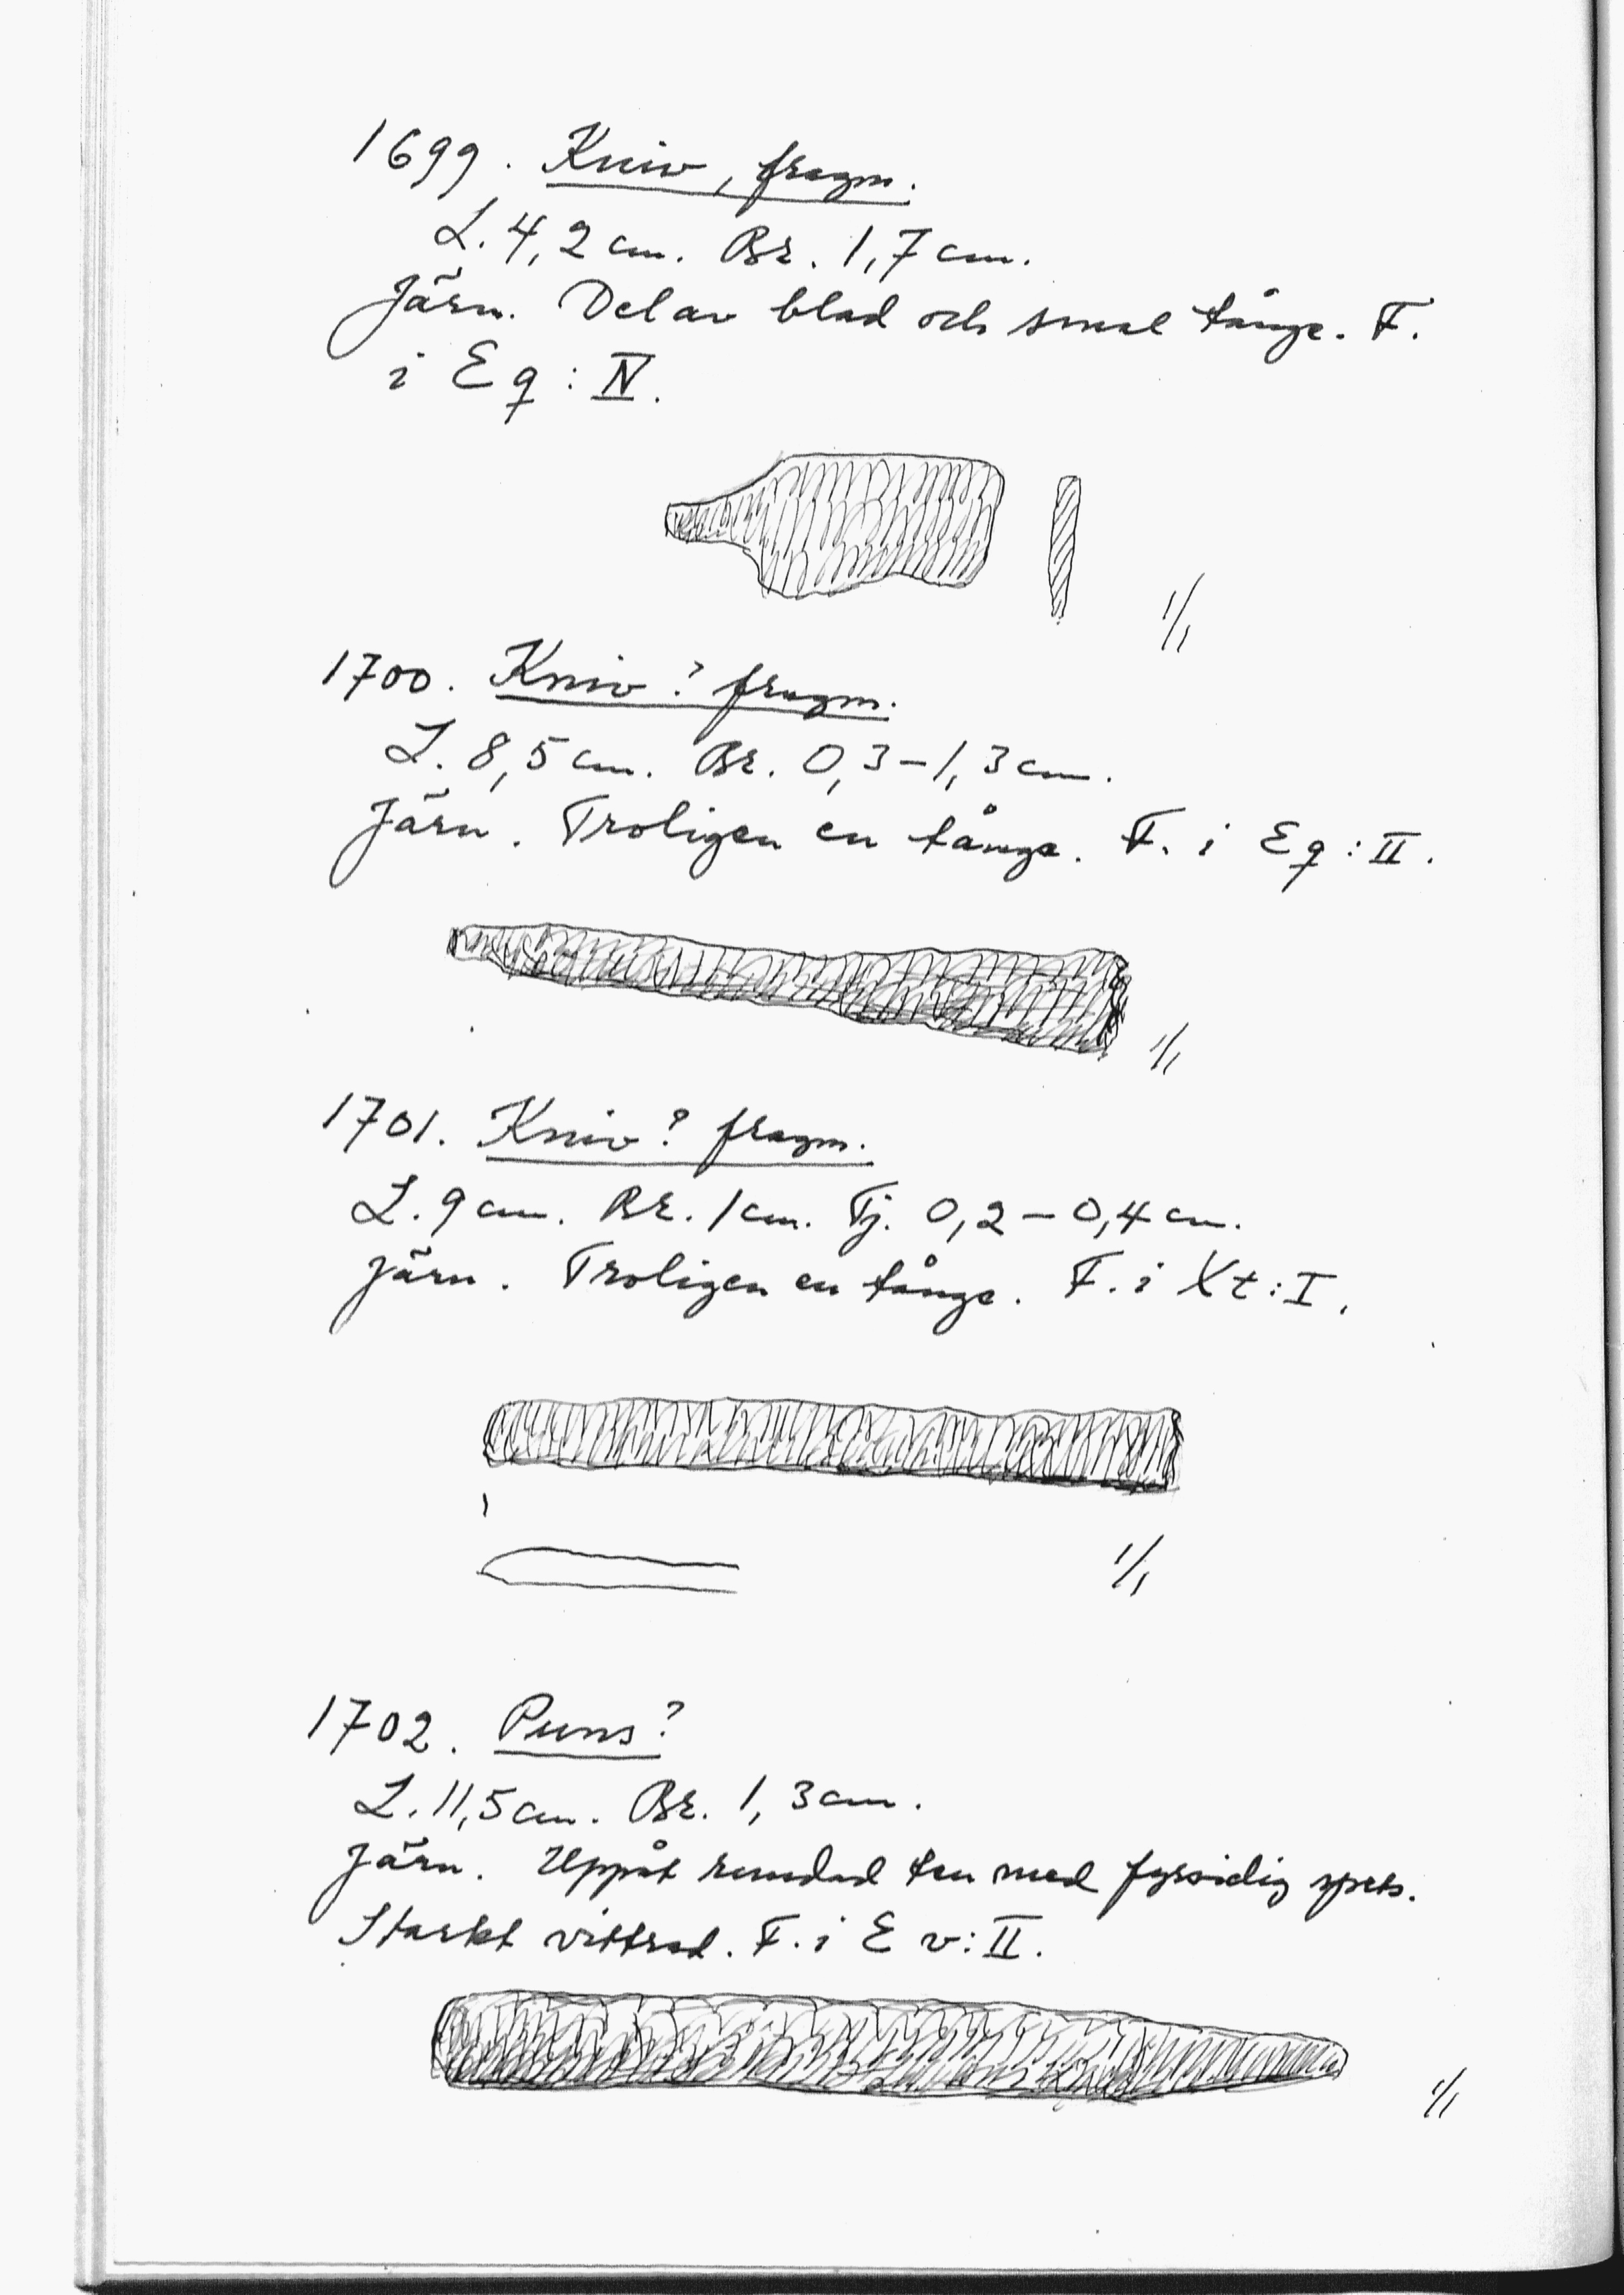 1699. Kniv, fragm.
L. 4,2 cm. Br. 1,7 cm.
Järn. Del av blad och smal tånge. F.
i Eq : IV.
1/1
1700. Kniv? fragm.
L. 8,5 cm. Br. 0,3–1,3 cm.
Järn. Troligen en tånge. F. i Eq : II.
1/1
1701. Kniv? fragm.
L. 9 cm. Br. 1 cm. Tj. 0,2 – 0,4 cm.
Järn. Troligen en tånge. F. i Xt : I.
1/1
1702. Puns?
L. 11,5 cm. Br. 1,3 cm.
Järn. Uppåt rundad ten med fyrsidig spets.
Starkt vittrad. F. i E v : II.
1/1